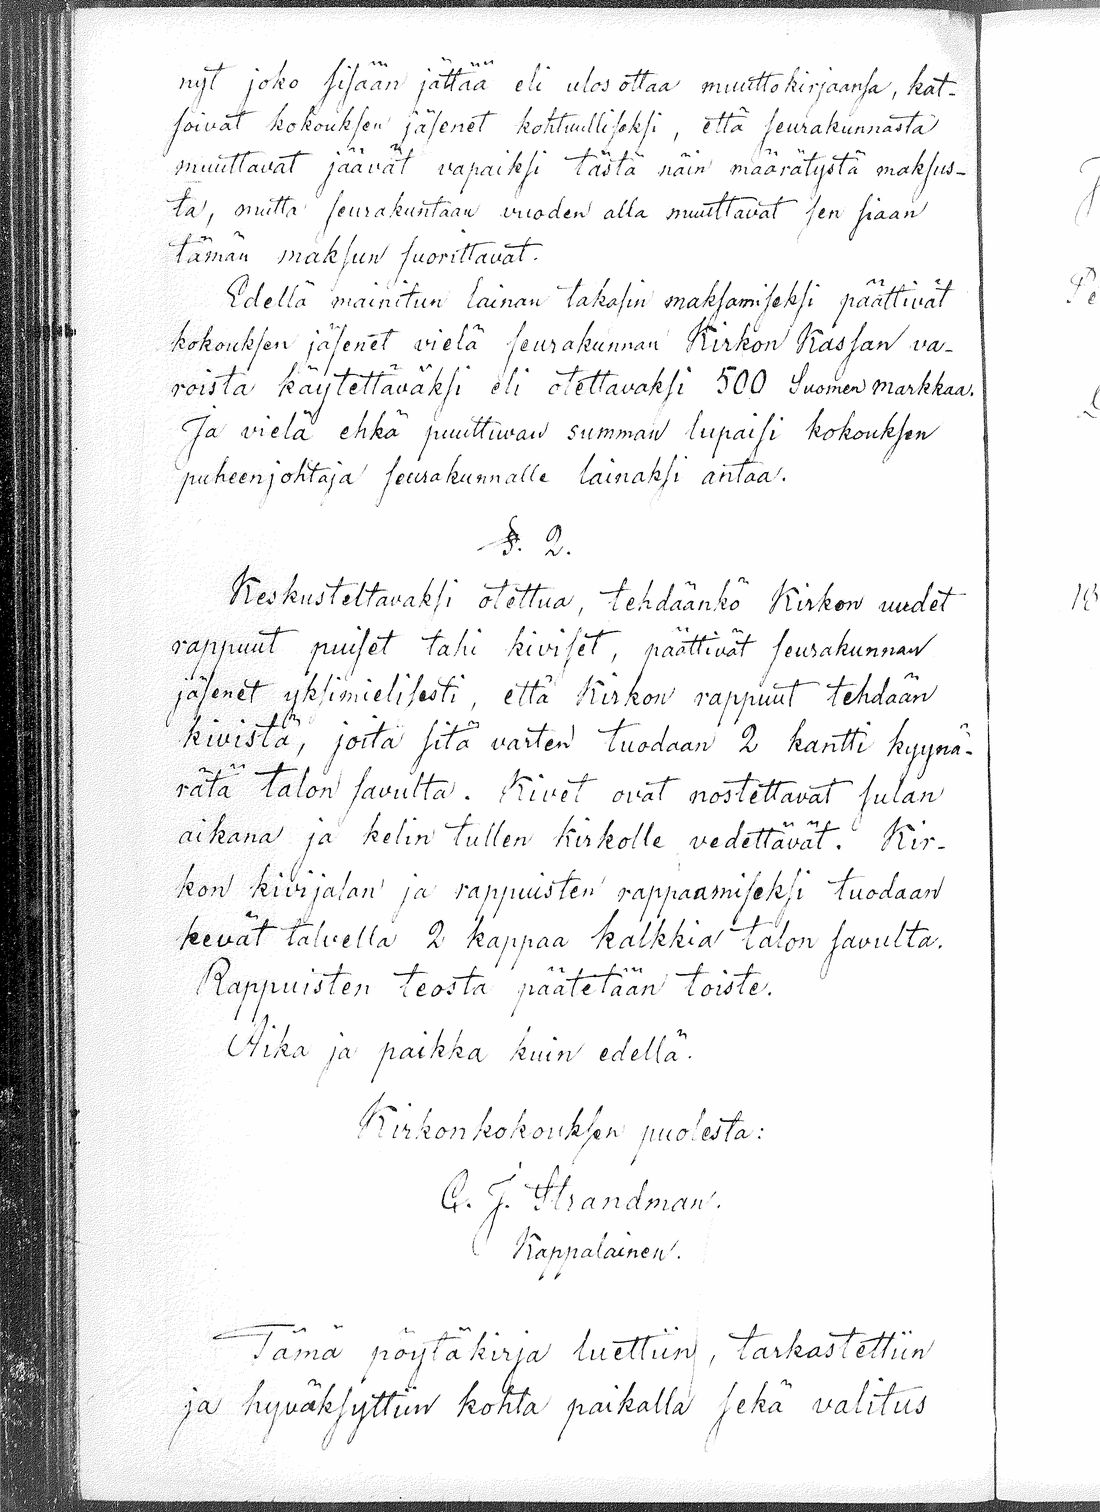 nyt joko sisään jättää eli ulos ottaa muuttokirjaansa, kat-
soivat kokouksen jäsenet kohtuulliseksi, että seurakunnasta
muuttavat jäävät vapaiksi tästä näin määrätystä maksus-
ta, mutta seurakuntaan vuoden alla muuttavat sen siaan
tämän maksun suorittavat.
Edellä mainitun lainan takasin maksamiseksi päättivät
kokouksen jäsenet vielä seurakunnan Kirkon Kassan va-
roista käytettäväksi eli otettavaksi 500 Suomen markkaa.
Ja vielä ehkä puuttuvan summan lupaisi kokouksen
puheenjohtaja seurakunnalle lainaksi antaa.
§. 2.
Keskusteltavaksi otettua, tehdäänkö Kirkon uudet
rappuut puiset tahi kiviset, päättivät seurakunnan
jäsenet yksimielisesti, että Kirkon rappuut tehdään
kivistä, joita sitä varten tuodaan 2 kantti kyynä-
rätä talon savulta. Kivet ovat nostettavat sulan
aikana ja kelin tullen kirkolle vedettävät. Kir-
kon kivijalan ja rappuisten rappaamiseksi tuodaan
kevät talvella 2 kappaa kalkkia talon savulta.
Rappuisten teosta päätetään toiste.
Aika ja paikka kuin edellä.
Kirkonkokouksen puolesta:
G. J. Strandman.
Kappalainen.
Tämä pöytäkirja luettiin, tarkastettiin
ja hyväksyttiin kohta paikalla sekä valitus